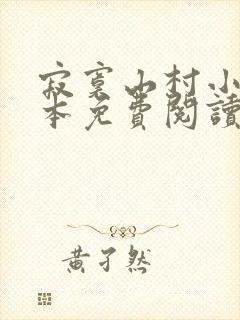 寂寞山村小
本免費閱讀
黃子然